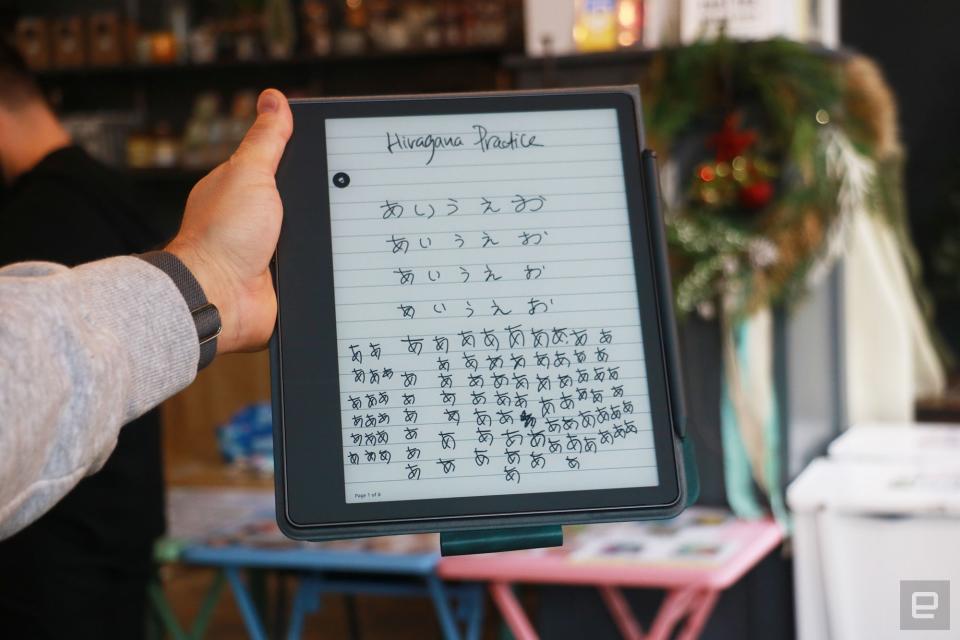 Hiragana Practice
あ い う え お
あ い う え お
あ い う え お
あ い う え お
あ あ あ あ あ あ あ あ あ あ あ
あ あ あ あ あ あ あ あ
あ あ あ あ あ あ あ あ あ あ あ あ あ
あ あ あ あ あ あ あ あ あ あ あ あ あ
あ あ あ あ あ あ あ あ あ あ あ あ
あ あ あ あ あ あ あ あ あ あ あ あ あ あ
あ あ あ あ あ あ あ あ あ
あ あ
Page 1 of 8